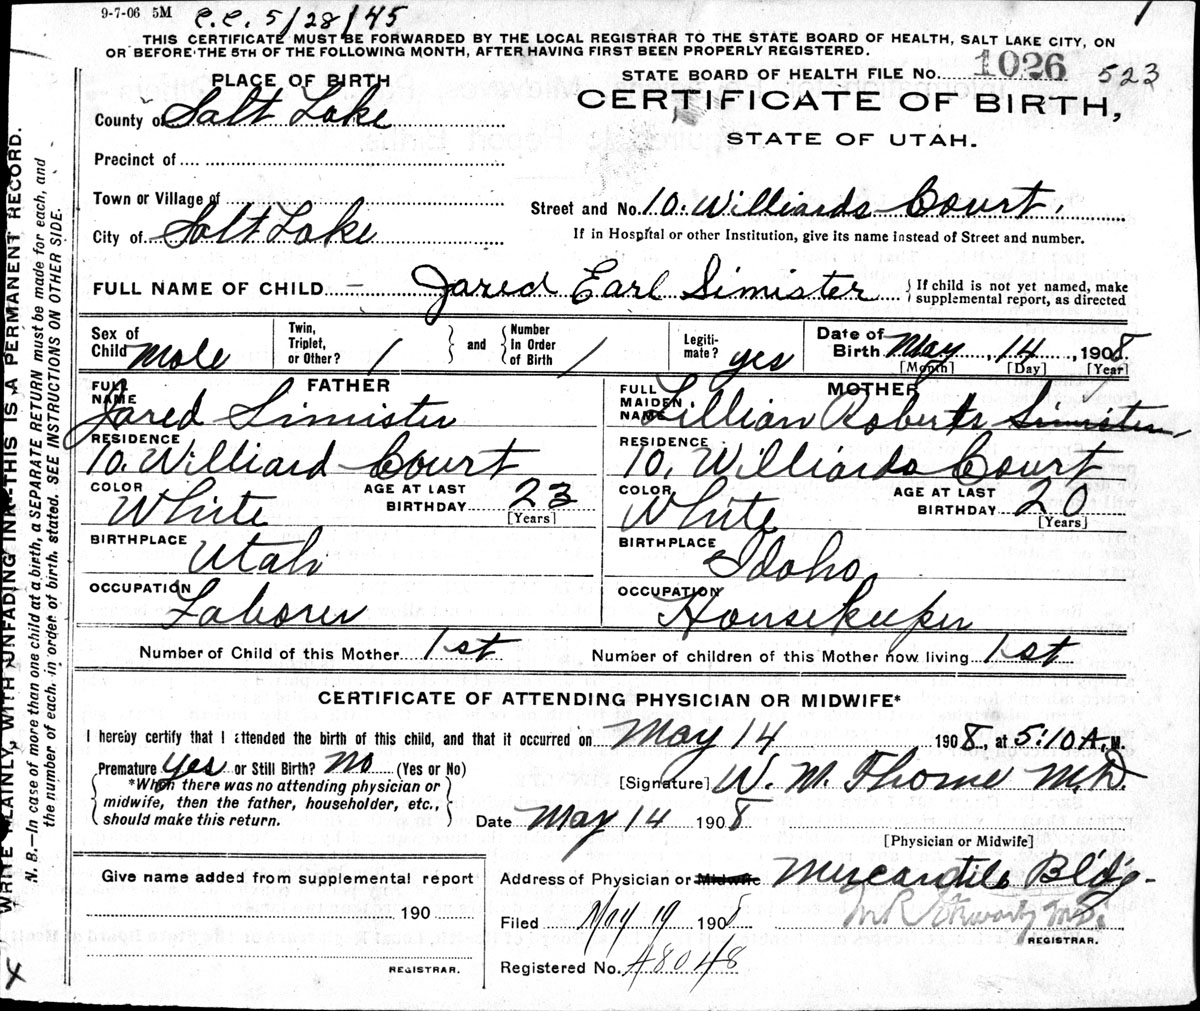 9-7-06 5M C.C. 5/28/45
THIS CERTIFICATE MUST BE FORWARDED BY THE LOCAL REGISTRAR TO THE STATE BOARD OF HEALTH, SALT LAKE CITY, ON
OR BEFORE THE 5TH OF THE FOLLOWING MONTH, AFTER HAVING FIRST BEEN PROPERLY REGISTERED.
PLACE OF BIRTH
County of Salt Lake
Precinct of
Town or Village of
City of Salt Lake
STATE BOARD OF HEALTH FILE No. 1026 523
CERTIFICATE OF BIRTH,
STATE OF UTAH.
Street and No. 10. Williards Court.
If in Hospital or other Institution, give its name instead of Street and number.
FULL NAME OF CHILD Jared Earl Simister
If child is not yet named, make
supplemental report, as directed
Sex of
Child Male
Twin,
Triplet,
or Other? 1
and
Number
In Order
of Birth 1
Legiti-
mate? yes
Date of
Birth May, 14, 1908
[Month] [Day] [Year]
FATHER
FULL
NAME Jared Simister
RESIDENCE
10. Williard Court
COLOR White
AGE AT LAST
BIRTHDAY 23
[Years]
BIRTHPLACE Utah
OCCUPATION Laborer
MOTHER
FULL
MAIDEN
NAME Lillian Roberts Simister
RESIDENCE
10, Williards Court
COLOR White
AGE AT LAST
BIRTHDAY 20
[Years]
BIRTHPLACE Idaho
OCCUPATION Housekeeper
Number of Child of this Mother 1st
Number of children of this Mother now living 1st
CERTIFICATE OF ATTENDING PHYSICIAN OR MIDWIFE*
I hereby certify that I attended the birth of this child, and that it occurred on May 14 1908, at 5:10 A. M.
Premature yes or Still Birth? No (Yes or No)
*When there was no attending physician or
midwife, then the father, householder, etc.,
should make this return.
[Signature] W. M. Thorne M.D.
Date May 14 1908
[Physician or Midwife]
Give name added from supplemental report
190
REGISTRAR.
Address of Physician or Midwife Mercantile Bldg.
Filed May 19 1908 M R Stewart M.D.
REGISTRAR.
Registered No. A8048
WRITE PLAINLY, WITH UNFADING INK—THIS IS A PERMANENT RECORD.
N. B.—In case of more than one child at a birth, a SEPARATE RETURN must be made for each, and
the number of each, in order of birth, stated. SEE INSTRUCTIONS ON OTHER SIDE.
X